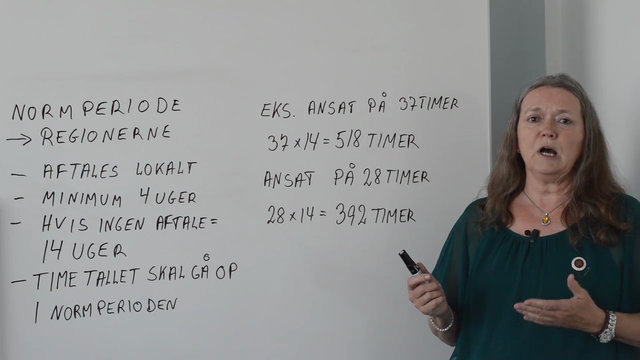 NORMPERIODE
→ REGIONERNE
- AFTALES LOKALT
- MINIMUM 4 UGER
- HVIS INGEN AFTALE=
14 UGER
- TIMETALLET SKAL GÅ OP
I NORMPERIODEN
EKS. ANSAT PÅ 37 TIMER
37 x 14 = 518 TIMER
ANSAT PÅ 28 TIMER
28 x 14 = 392 TIMER